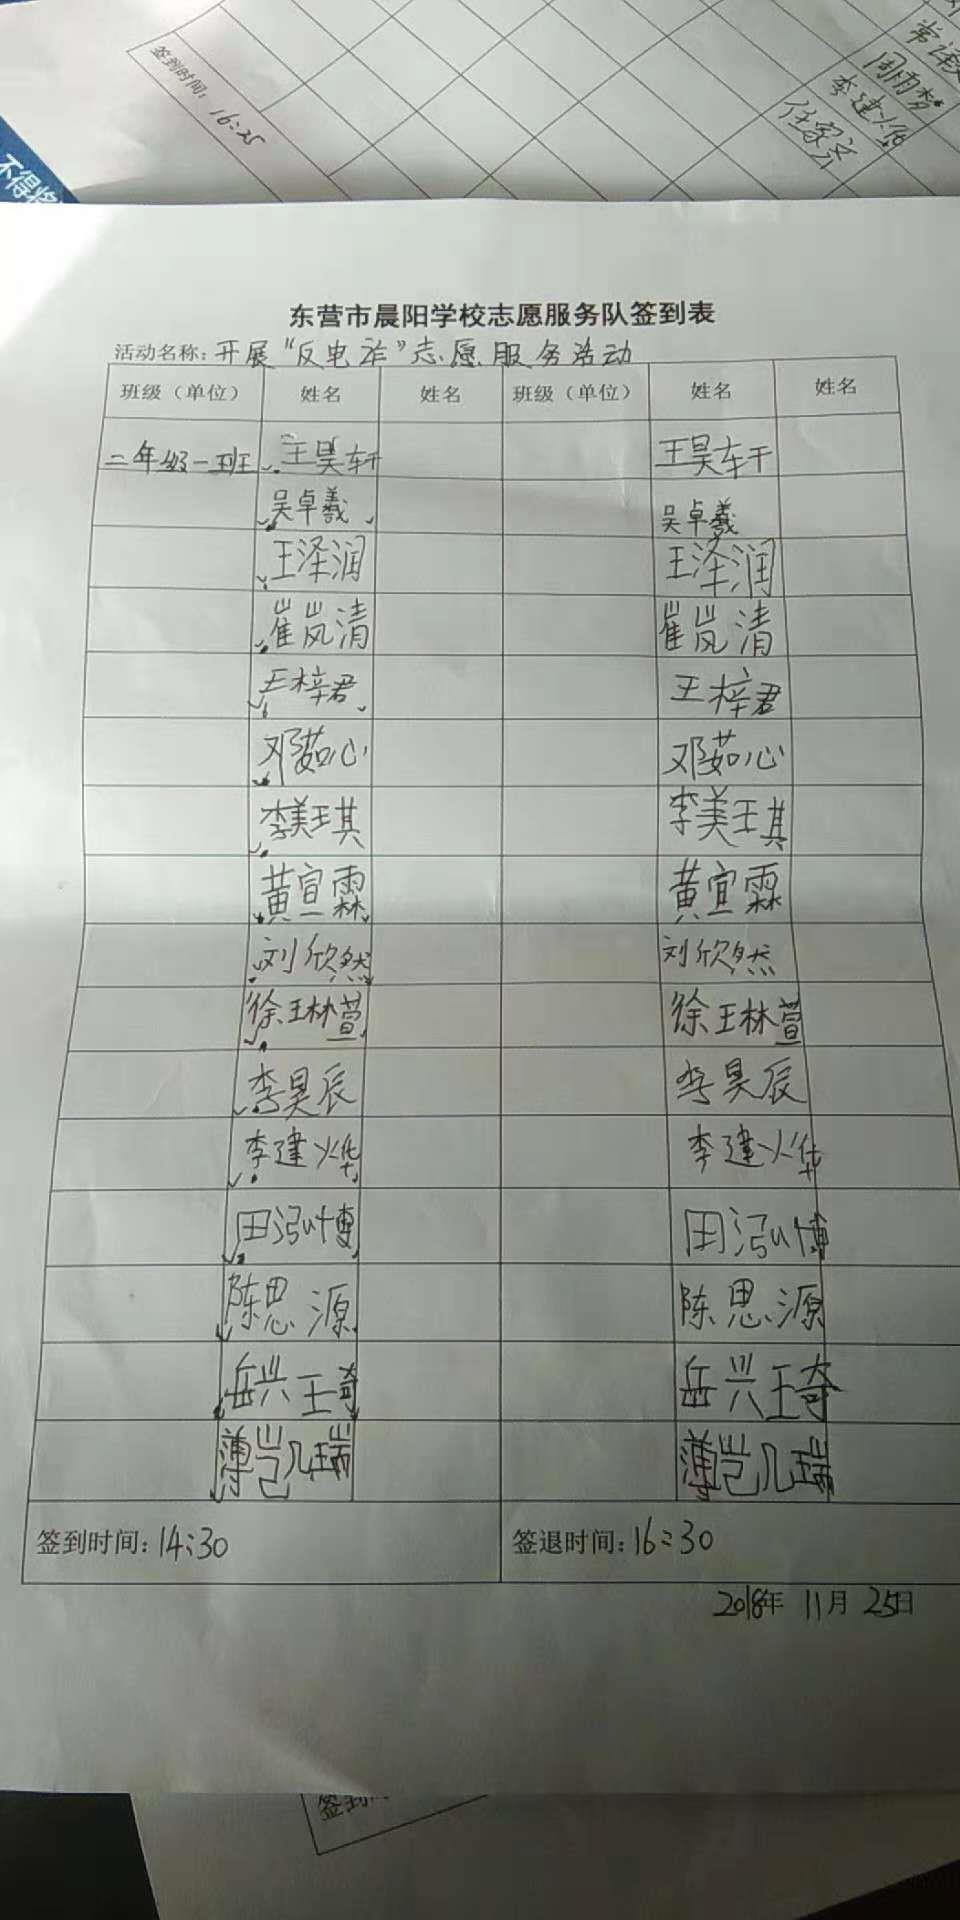 签到时间：16:25
周雨梦
李建烨
任家齐
不得将
东营市晨阳学校志愿服务队签到表
活动名称：开展“反电诈”志愿服务活动
班级（单位） 姓名 姓名 班级（单位） 姓名 姓名
二年级一班 王昊轩 王昊轩
吴卓羲 吴卓羲
王泽润 王泽润
崔岚清 崔岚清
王梓君 王梓君
邓茹心 邓茹心
李美琪 李美琪
黄宣霖 黄宣霖
刘欣然 刘欣然
徐琳萱 徐琳萱
李昊辰 李昊辰
李建烨 李建烨
田泓博 田泓博
陈思源 陈思源
岳兴琦 岳兴琦
薄凯瑞 薄凯瑞
签到时间：14:30 签退时间：16:30
2018年 11月 25日
签到